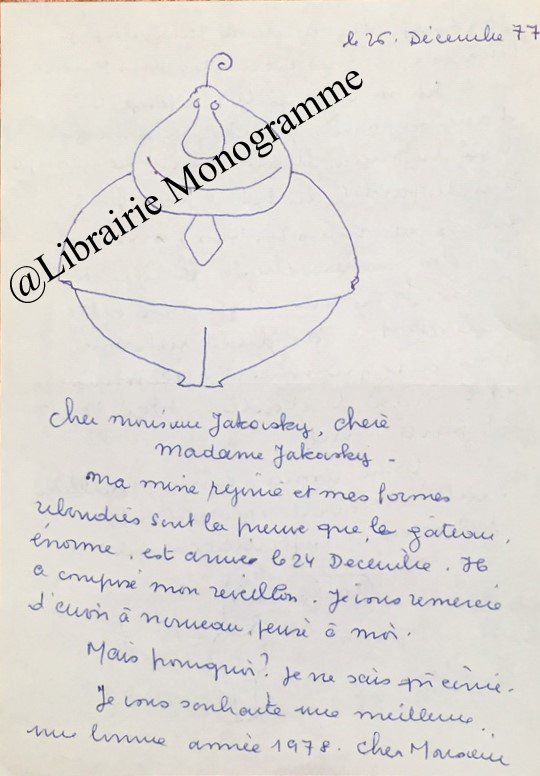 le 26. Décembre 77
@Librairie Monogramme
Cher monsieur Jakovsky, chère
madame Jakovsky -
Ma mine réjouie et mes formes
rebondies sont la preuve que le gâteau,
énorme, est arrivé le 24 Décembre. Il
a composé mon réveillon. Je vous remercie
d'avoir à nouveau, pensé à moi.
Mais pourquoi? Je ne sais
Je vous souhaite une meilleure
une bonne année 1978. Cher Monsieur